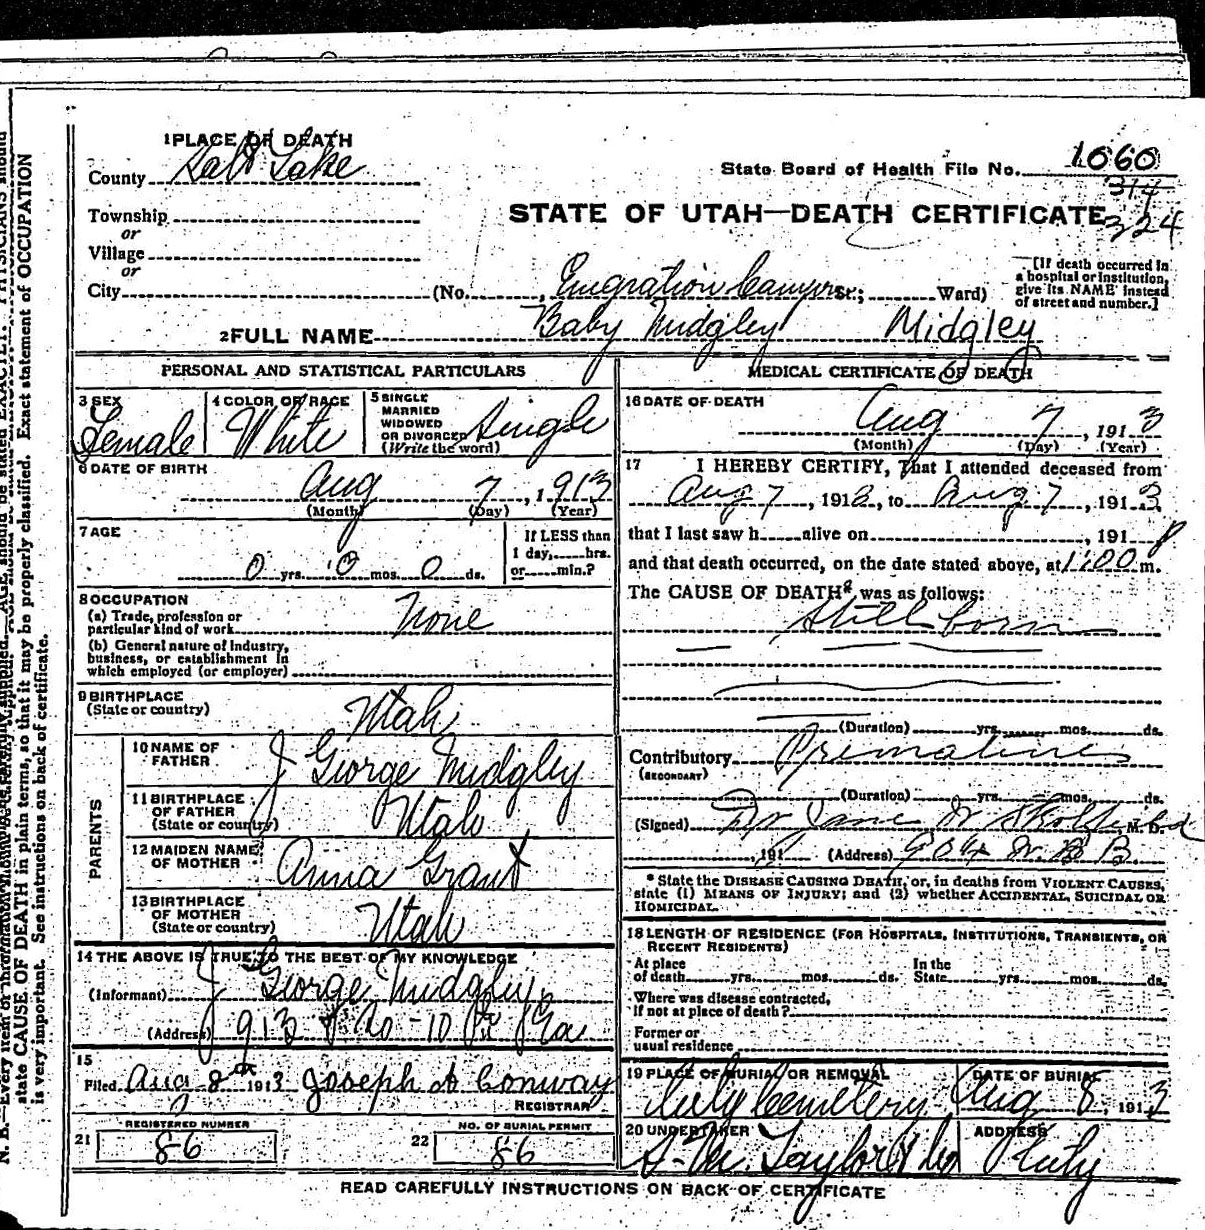 1 PLACE OF DEATH
County Salt Lake
Township
or
Village
or
City
State Board of Health File No. 1060
314
324
STATE OF UTAH—DEATH CERTIFICATE
(No. , Emgration Canyon St.; Ward)
[If death occurred in
a hospital or institution,
give its NAME instead
of street and number.]
2 FULL NAME Baby Midgley Midgley
PERSONAL AND STATISTICAL PARTICULARS
3 SEX
Female
4 COLOR OR RACE
White
5 SINGLE
MARRIED
WIDOWED
OR DIVORCED
(Write the word)
Single
6 DATE OF BIRTH
Aug 7, 1913
(Month) (Day) (Year)
7 AGE
0 yrs. 0 mos. 0 ds.
If LESS than
1 day, hrs.
or min.?
8 OCCUPATION
(a) Trade, profession or
particular kind of work None
(b) General nature of industry,
business, or establishment in
which employed (or employer)
9 BIRTHPLACE
(State or country)
Utah
PARENTS
10 NAME OF
FATHER
J George Midgley
11 BIRTHPLACE
OF FATHER
(State or country)
Utah
12 MAIDEN NAME
OF MOTHER
Anna Grant
13 BIRTHPLACE
OF MOTHER
(State or country)
Utah
14 THE ABOVE IS TRUE TO THE BEST OF MY KNOWLEDGE
(Informant) J George Midgley
(Address) 913
15
Filed Aug 8th 1913 Joseph Conway
REGISTRAR
REGISTERED NUMBER
21 86
NO. OF BURIAL PERMIT
22 86
MEDICAL CERTIFICATE OF DEATH
16 DATE OF DEATH
Aug 7, 1913
(Month) (Day) (Year)
17 I HEREBY CERTIFY, That I attended deceased from
Aug 7, 1913, to Aug 7, 1913
that I last saw h alive on , 191
and that death occurred, on the date stated above, at 1:00 m.
The CAUSE OF DEATH* was as follows:
Still born
(Duration) yrs. mos. ds.
Contributory
(SECONDARY)
(Duration) yrs. mos. ds.
(Signed) Dr Jane M. D.
, 191 (Address)
* State the DISEASE CAUSING DEATH, or, in deaths from VIOLENT CAUSES,
state (1) MEANS OF INJURY; and (2) whether ACCIDENTAL, SUICIDAL OR
HOMICIDAL.
18 LENGTH OF RESIDENCE (FOR HOSPITALS, INSTITUTIONS, TRANSIENTS, OR
RECENT RESIDENTS)
At place
of death yrs. mos. ds.
In the
State yrs. mos. ds.
Where was disease contracted,
if not at place of death?
Former or
usual residence
19 PLACE OF BURIAL OR REMOVAL
City Cemetery
DATE OF BURIAL
Aug 8, 1913
20 UNDERTAKER
S. M. Taylor & Co
ADDRESS
City
READ CAREFULLY INSTRUCTIONS ON BACK OF CERTIFICATE
state CAUSE OF DEATH in plain terms, so that it may be properly classified. Exact statement of OCCUPATION
is very important. See instructions on back of certificate.